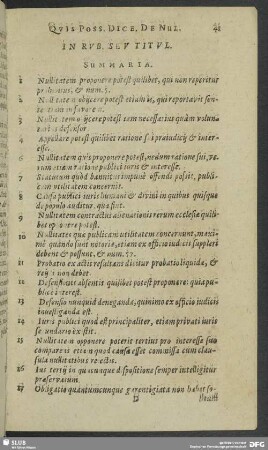 QVIS POSS. DICE. DE NUL. 41
IN RVB. SEV TITVL.
SUMMARIA.
1 Nullitatem proponere potest quilibet, qui non reperitur
prohibitus, & num. 5.
2 Nullitatem obijcere potest etiam is, qui reportavit sen-
tentiam in favorem.
3 Nullitatem obijcere potest tam necessarius quàm volun-
tarius defensor.
4 Appellare potest quilibet ratione sui praeiudicij & inter-
esse.
6 Nullitatem quis proponere potest, nedum ratione sui, ve-
rum etiam ratione publici iuris & interesse.
7 Statutum quòd bannitus impunè offendi possit, publi-
cam utilitatem concernit.
8 Causis publici iuris humani & divini in quibus quisque
de populo auditur, quae sint.
9 Nullitatem contractus alienationis rerum ecclesiae quili-
bet opponere potest.
10 Nullitates quae publicam utilitatem concernunt, maxi-
mè quando sunt notoriae, etiam ex officio iudicis suppleri
debent & possunt, & num. 22.
11 Probatio ex actis resultans dicitur probatio liquida, &
rejici non debet.
12 Defensionem absentis quilibet potest proponere: quia pu-
blicè interest.
13 Defensio nunquam deneganda, quinimo ex officio iudicis
investiganda est.
14 Iuris publici quod est principaliter, etiam privati iuris
secundario existit.
15 Nullitatem opponere poterit tertius pro interesse suo
comparens etiam quod causa esset commissa cum clau-
sula nullitatibus reiectis.
16 Ius tertij in quacunque dispositione semper intelligitur
praeservatum.
17 Obligatio quantumcunque guarentigiata non habet lo-
D
SLUB
Wir führen Wissen.
DFG